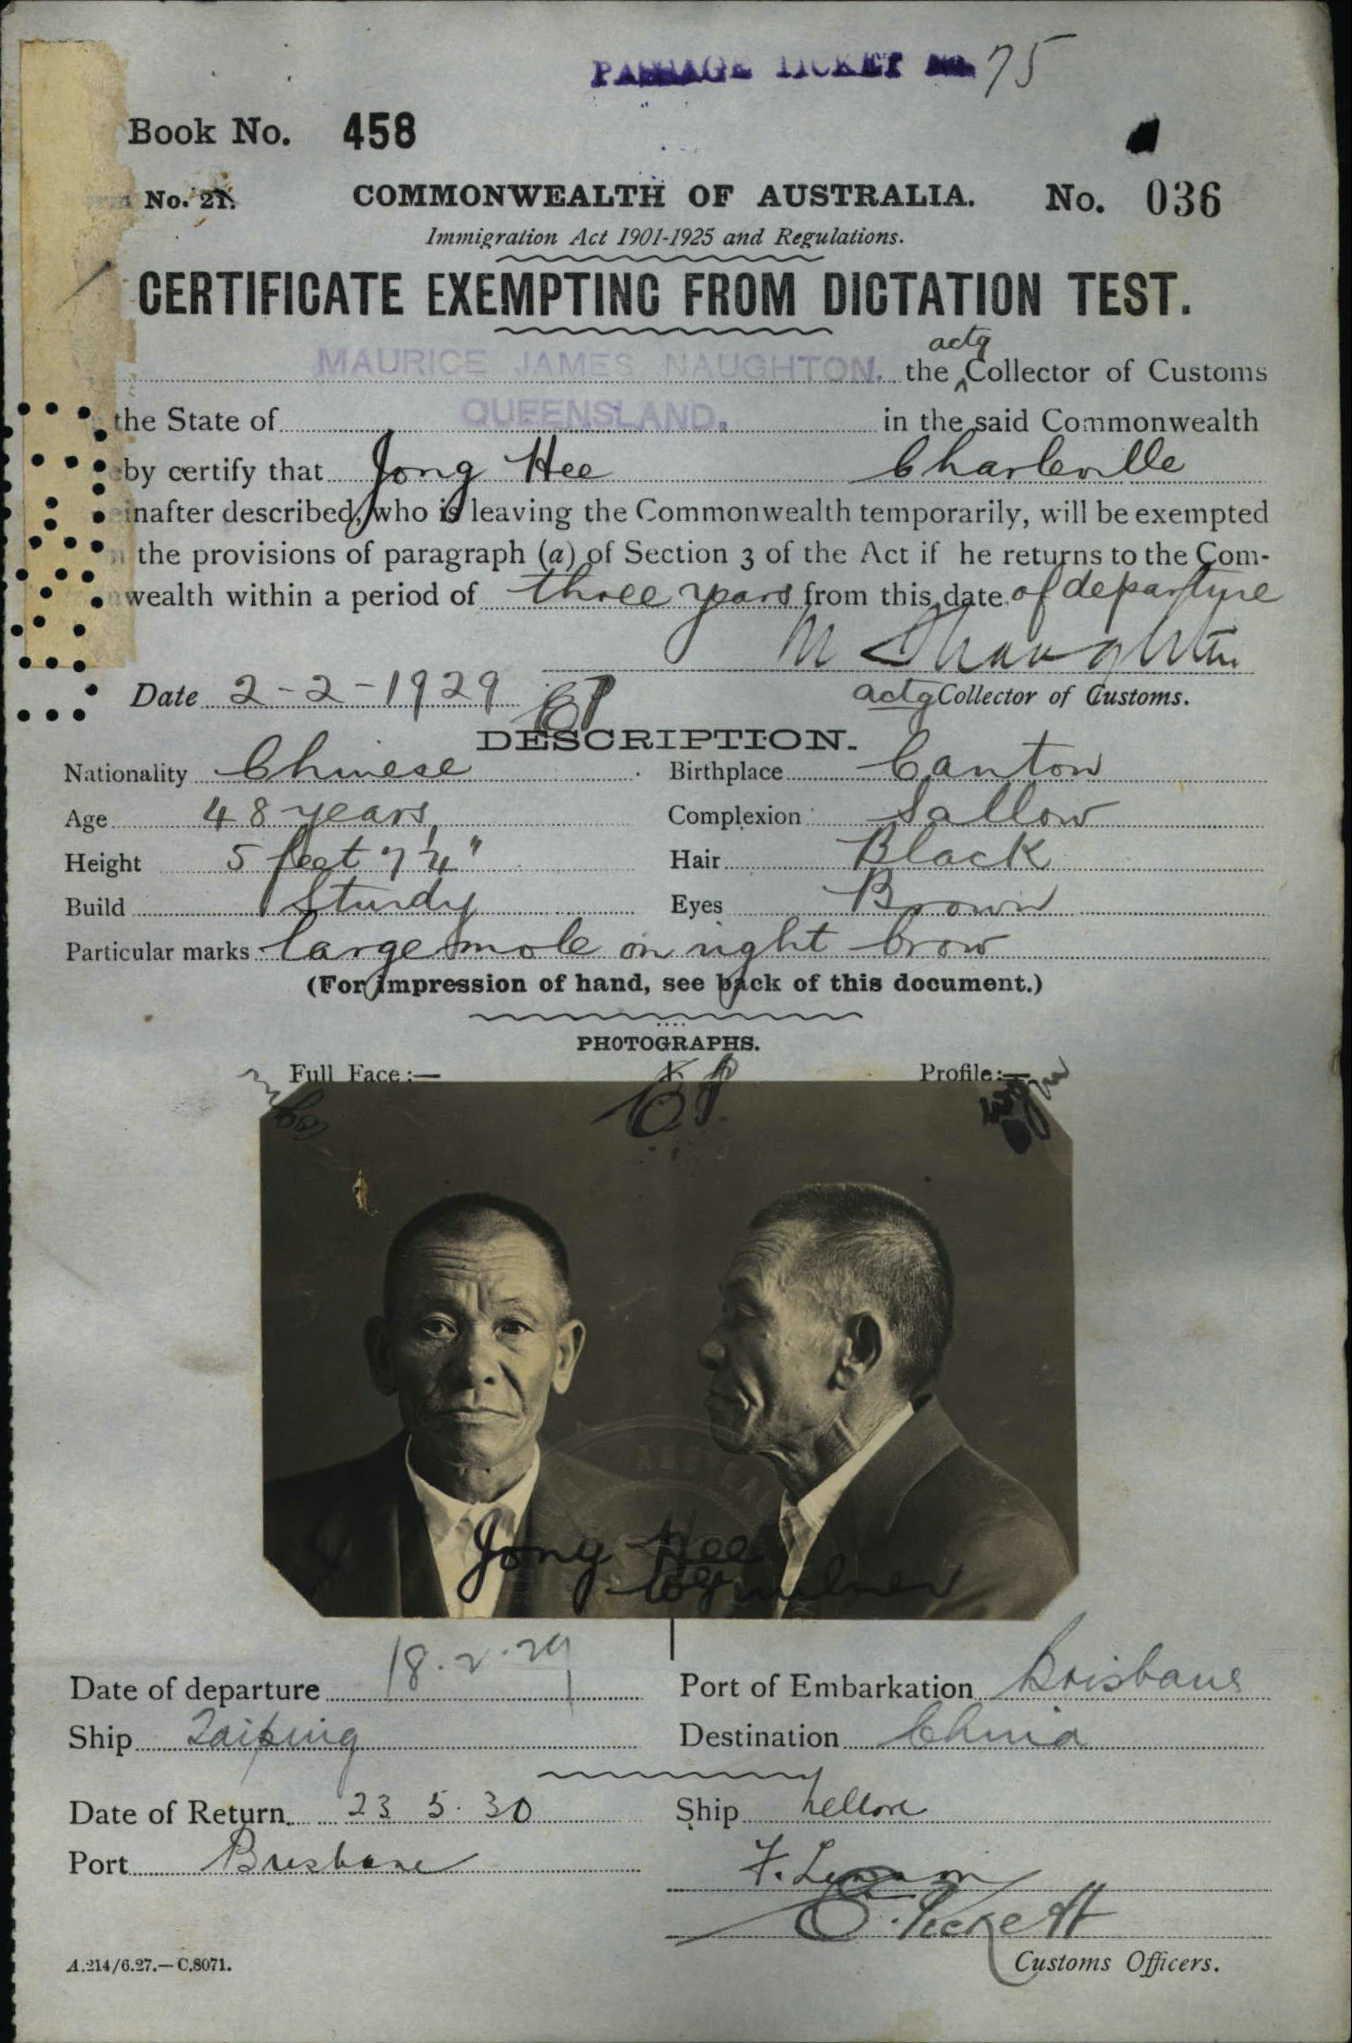 PASSAGE TICKET No. 75
Book No. 458
No. 21.
COMMONWEALTH OF AUSTRALIA. No. 036
Immigration Act 1901-1925 and Regulations.
CERTIFICATE EXEMPTING FROM DICTATION TEST.
actg
MAURICE JAMES NAUGHTON. the Collector of Customs
the State of QUEENSLAND. in the said Commonwealth
by certify that Jong Hee Charleville
inafter described, who is leaving the Commonwealth temporarily, will be exempted
the provisions of paragraph (a) of Section 3 of the Act if he returns to the Com-
wealth within a period of three years from this date of departure
Date 2-2-1929
actg Collector of Customs.
DESCRIPTION.
Nationality Chinese Birthplace Canton
Age 48 years Complexion Sallow
Height 5 feet 7 1/4" Hair Black
Build Sturdy Eyes Brown
Particular marks large mole on right brow
(For impression of hand, see back of this document.)
PHOTOGRAPHS.
Full Face:— Profile:—
Jong Hee
Date of departure 18.2.29 Port of Embarkation Brisbane
Ship Taiping Destination China
Date of Return 23 5. 30 Ship Nellore
Port Brisbane
E. Pickett
A.214/6.27.—C.8071. Customs Officers.